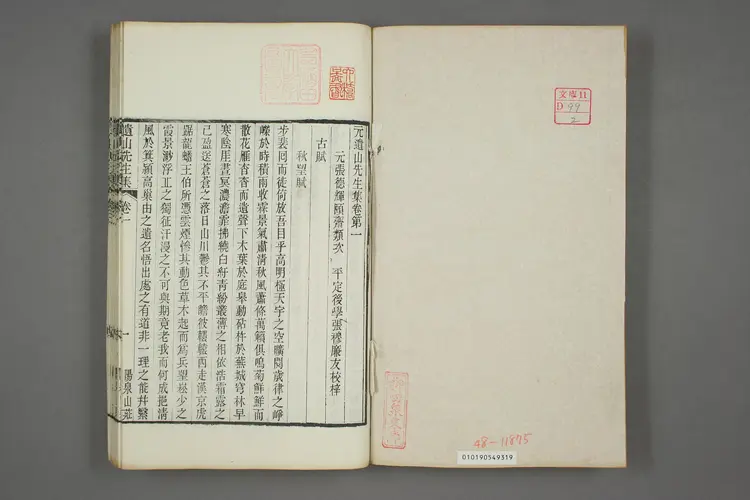 文庫11
D 99
2
48-11875
010190549319
元遺山先生集卷第一
元張德輝頤齋類次 平定後學張穆廉友校梓
古賦
秋望賦
步裴回而徙倚放吾目乎高明極天宇之空曠閱歲律之崢
嶸於時積雨收霖景氣肅清秋風蕭條萬籟俱鳴菊鮮鮮而
散花雁杳杳而遺聲下木葉於庭皋動砧杵於蕪城穹林早
寒陰崖晝冥濃澹霏拂繞白紆青紛叢薄之相依浩霜露之
已盈送蒼蒼之落日山川鬱其不平瞻彼轘轅西走漢京虎
踞龍蟠王伯所憑雲煙慘其動色草木起而爲兵望嵩少之
霞景渺浮丘之獨征汗漫之不可與期竟老我而何成挹清
風於箕潁高巢由之遺名悟出處之有道非一理之能幷繄
遺山先生集 卷一 一 陽泉山莊